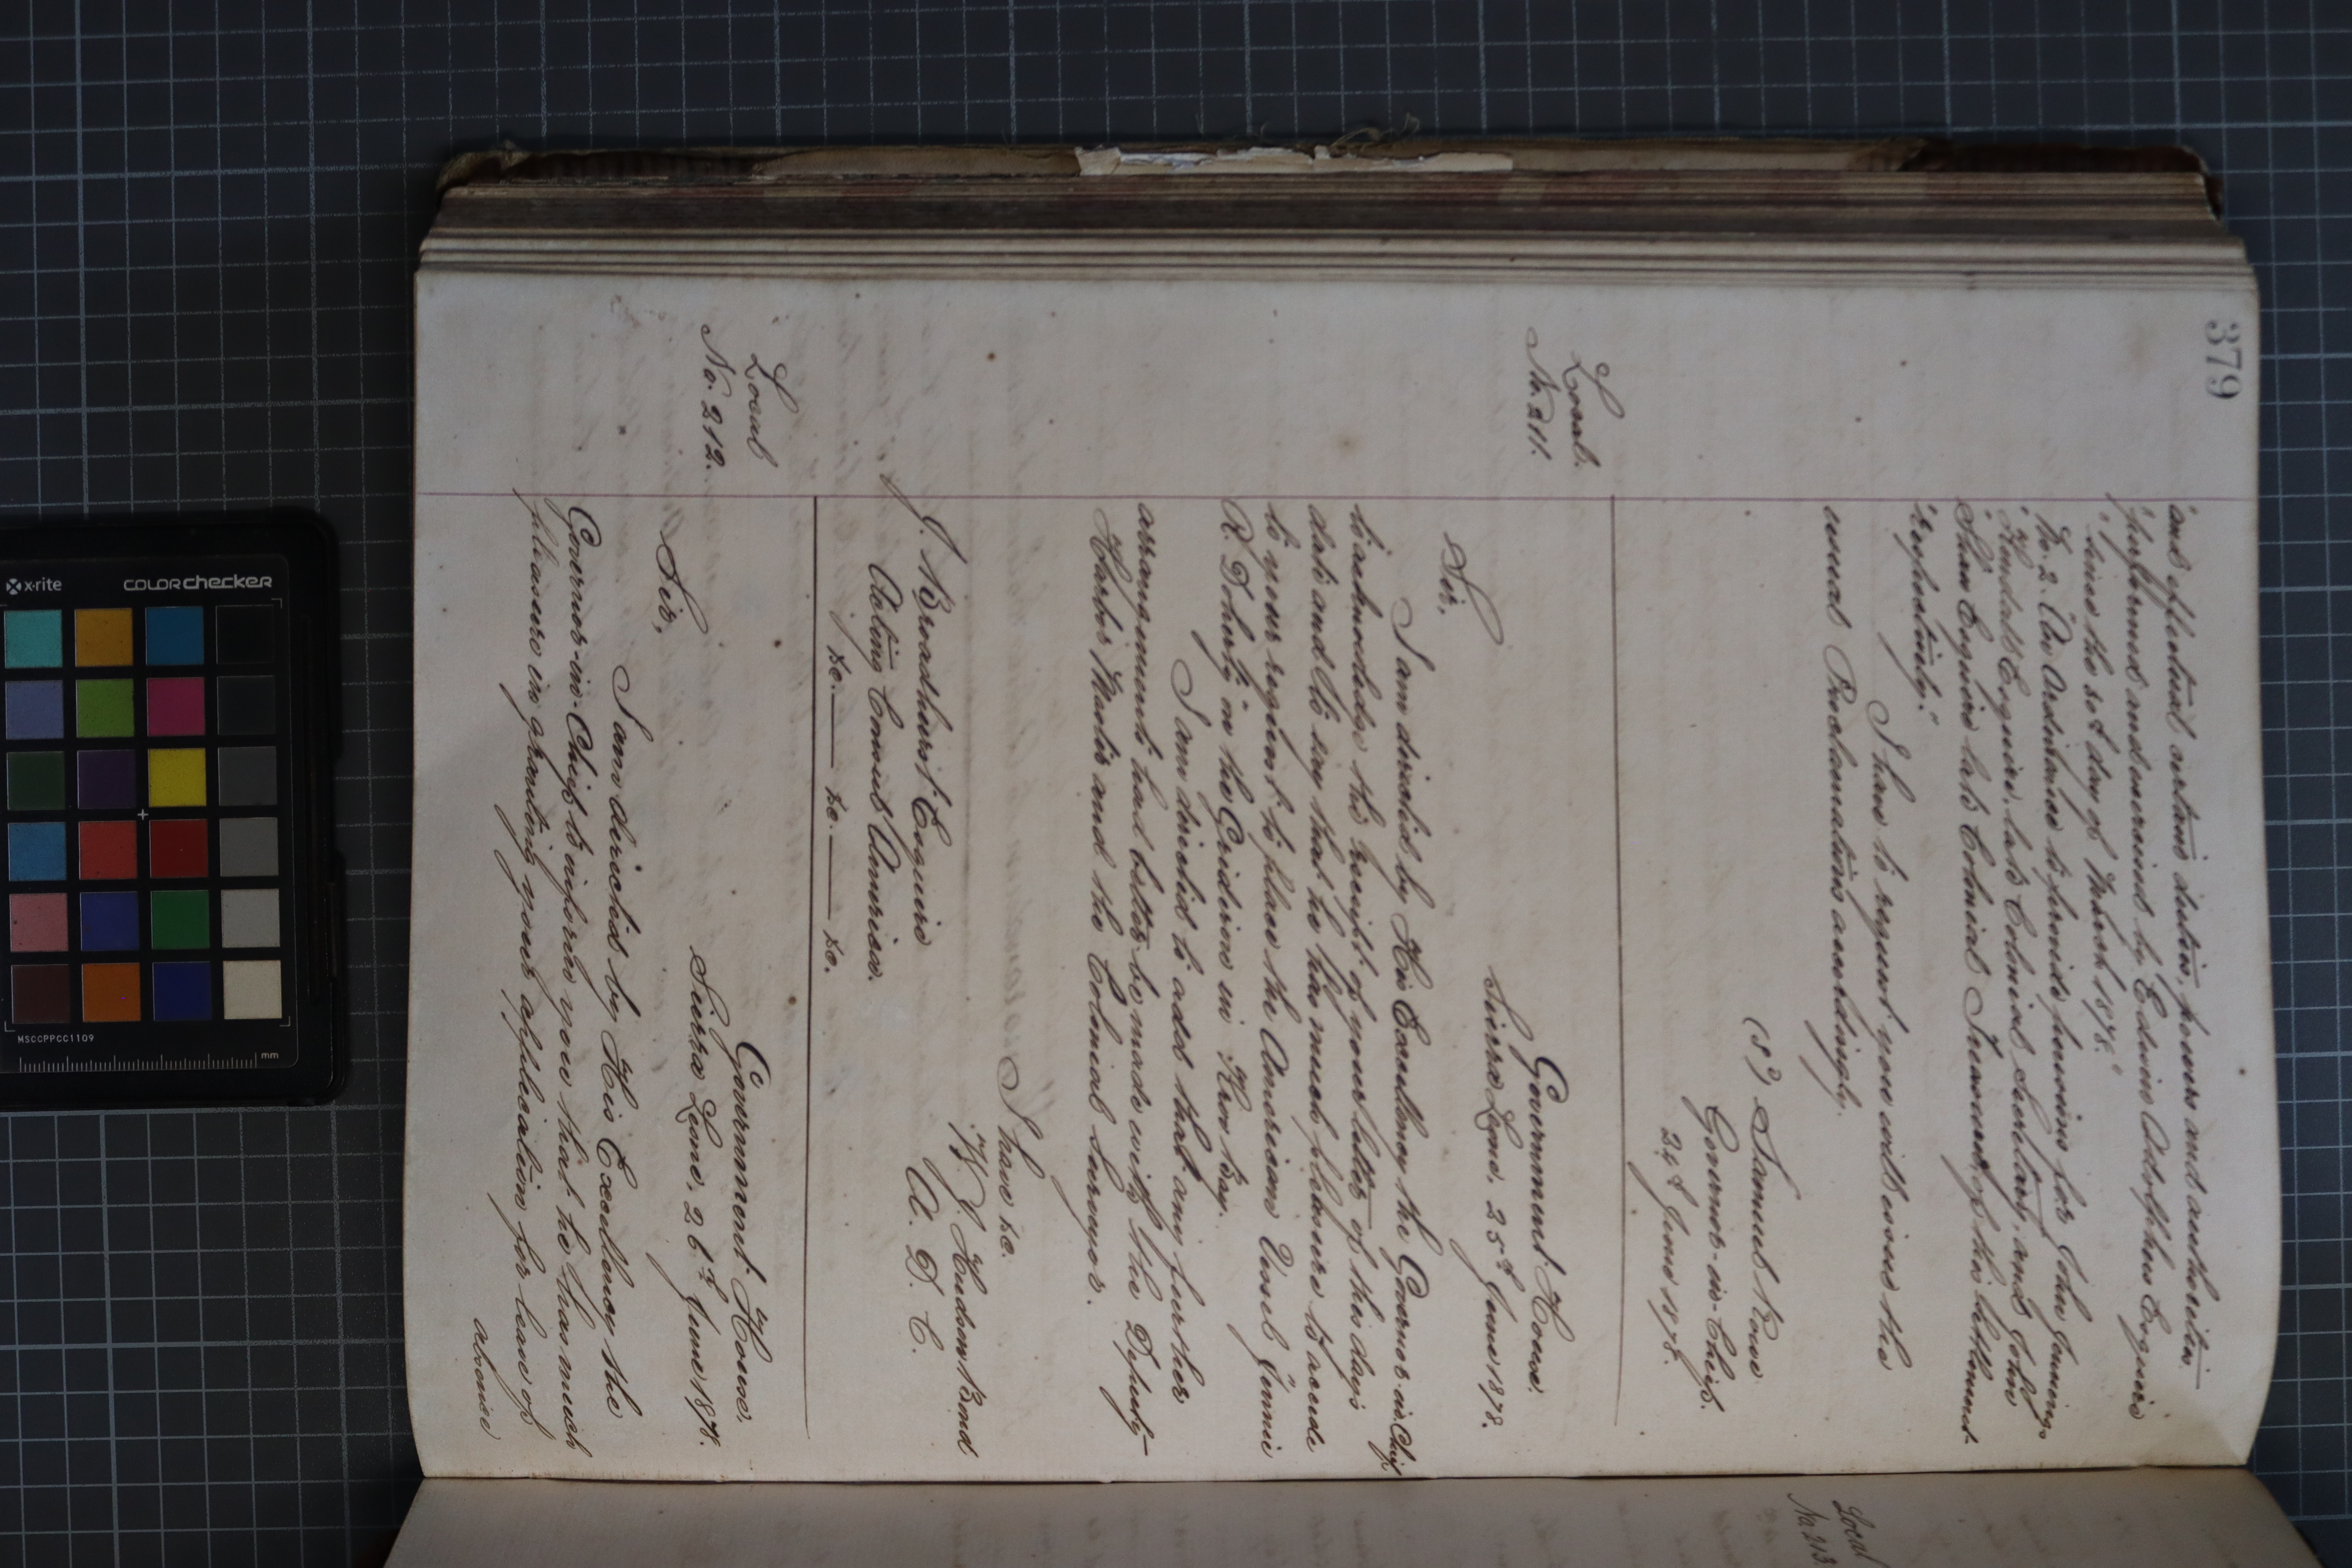 379
"and effectual certain duties, powers and authorities
"performed and exercised by Edwin Adolphus Esquire
"since the 20th day of March 1878."
No. 2. "An Ordinance to provide pensions for John Jennings
"Kendall Esquire, late Colonial Secretary, and John
"Shaw Esquire late Colonial Treasurer, of this Settlement
"respectively."
I have to request you will issue the
usual Proclamations accordingly.
(Sd) Samuel Rowe
Governor-in-Chief.
24th June 1878.
Local.
No. 211.
Government House.
Sierra Leone, 25th June 1878.
Sir,
I am directed by His Excellency the Governor-in-Chief
to acknowledge the receipt of your letter of this day's
date and to say that he has much pleasure to accede
to your request to place the American Vessel Jennie
R. Doherty on the Gridiron in Kroo Bay.
I am directed to add that any further
arrangement had better be made with the Deputy
Harbor Master and the Colonial Surveyor.
I have &c.
W. Hudson Bond
A. D. C.
J. Broadhurst Esquire
Acting Consul America.
&c. — &c. — &c.
Local
No. 212.
Government House.
Sierra Leone, 26th June 1878.
Sir,
I am directed by His Excellency the
Governor-in-Chief to inform you that he has much
pleasure in granting your application for leave of
absence
Local
No. 213.
x-rite
COLORchecker
MSCCPPCC1109
mm